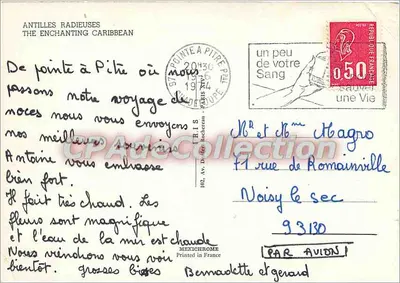 ANTILLES RADIEUSES
THE ENCHANTING CARIBBEAN
De pointe à Pitre où nous
passons notre voyage de
noces nous vous envoyons
nos meilleurs souvenirs
Antoine vous embrasse
bien fort.
Il fait très chaud. Les
fleurs sont magnifique
et l'eau de la mer est chaude
Nous viendrons vous voir
bientôt. grosses bises
Bernadette et gerard
MEXICHROME
Printed in France
PARIS
POINTE A PITRE
un peu
de votre
Sang
une Vie
REPUBLIQUE FRANÇAISE
0,50
Mr et Mme Magro
71 rue de Romainville
Noisy le sec
93130
PAR AVION
CPADeCollection